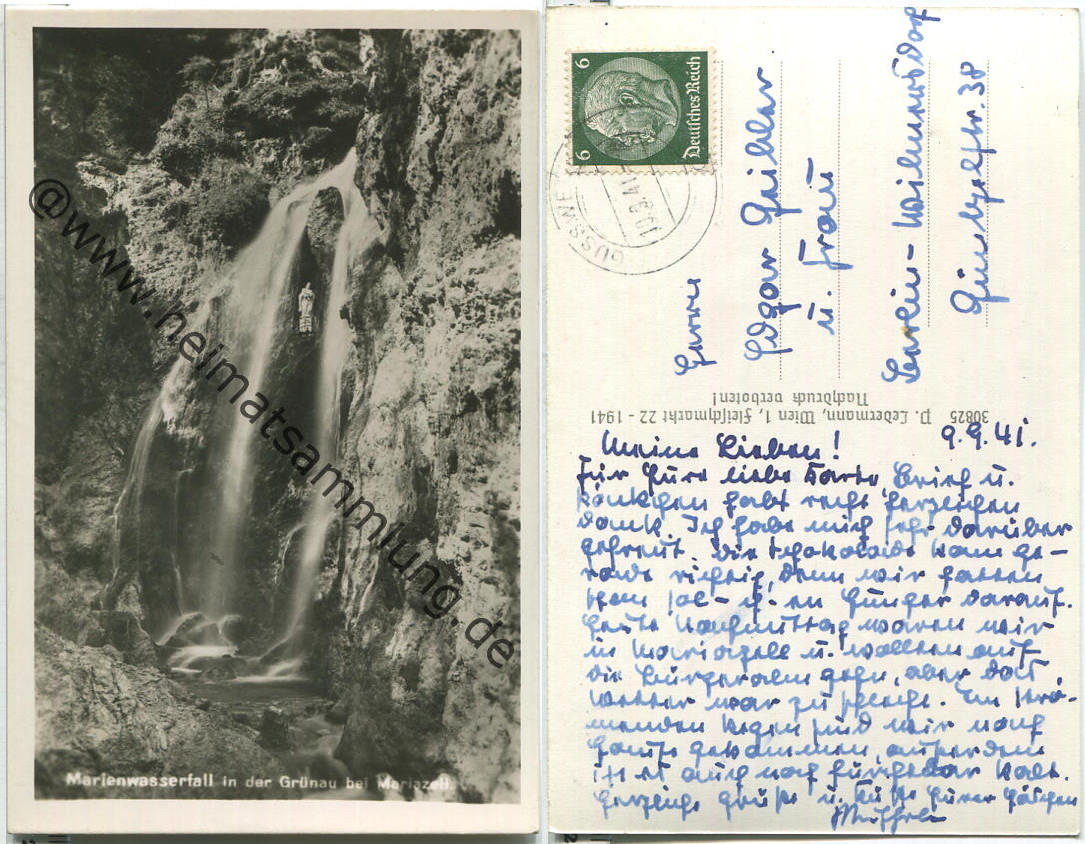 Marienwasserfall in der Grünau bei Mariazell.
@www.heimatsammlung.de
6 6
Deutsches Reich
GUSSWE
10.9.41
Herrn
Edgar
u. Frau
Berlin-Wilmersdorf
Güntzelstr. 38
30825 P. Ledermann, Wien 1, Fleischmarkt 22 - 1941
Nachdruck verboten!
9.9.41.
Meine Lieben!
Für Eure liebe Karte, Brief u.
Päckchen habt recht herzlichen
Dank. Ich habe mich sehr darüber
gefreut. Die Schokolade kam ge-
rade richtig, denn wir hatten
schon so einen Hunger darauf.
Heute Nachmittag waren wir
in Mariazell u. wollten auf
die Bürgeralm gehn, aber das
Wetter war zu schlecht. Im strö-
menden Regen sind wir nach
Hause gekommen, außerdem
ist es auch noch furchtbar kalt.
Herzliche Grüße u. Küße Eurer